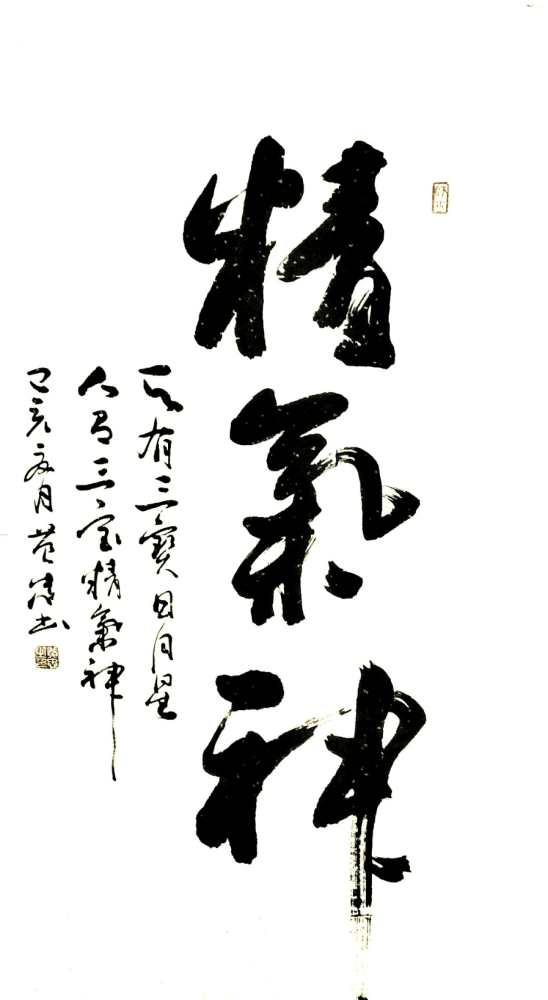 精氣神
天有三寶日月星
人有三宝精氣神
己亥年夏月